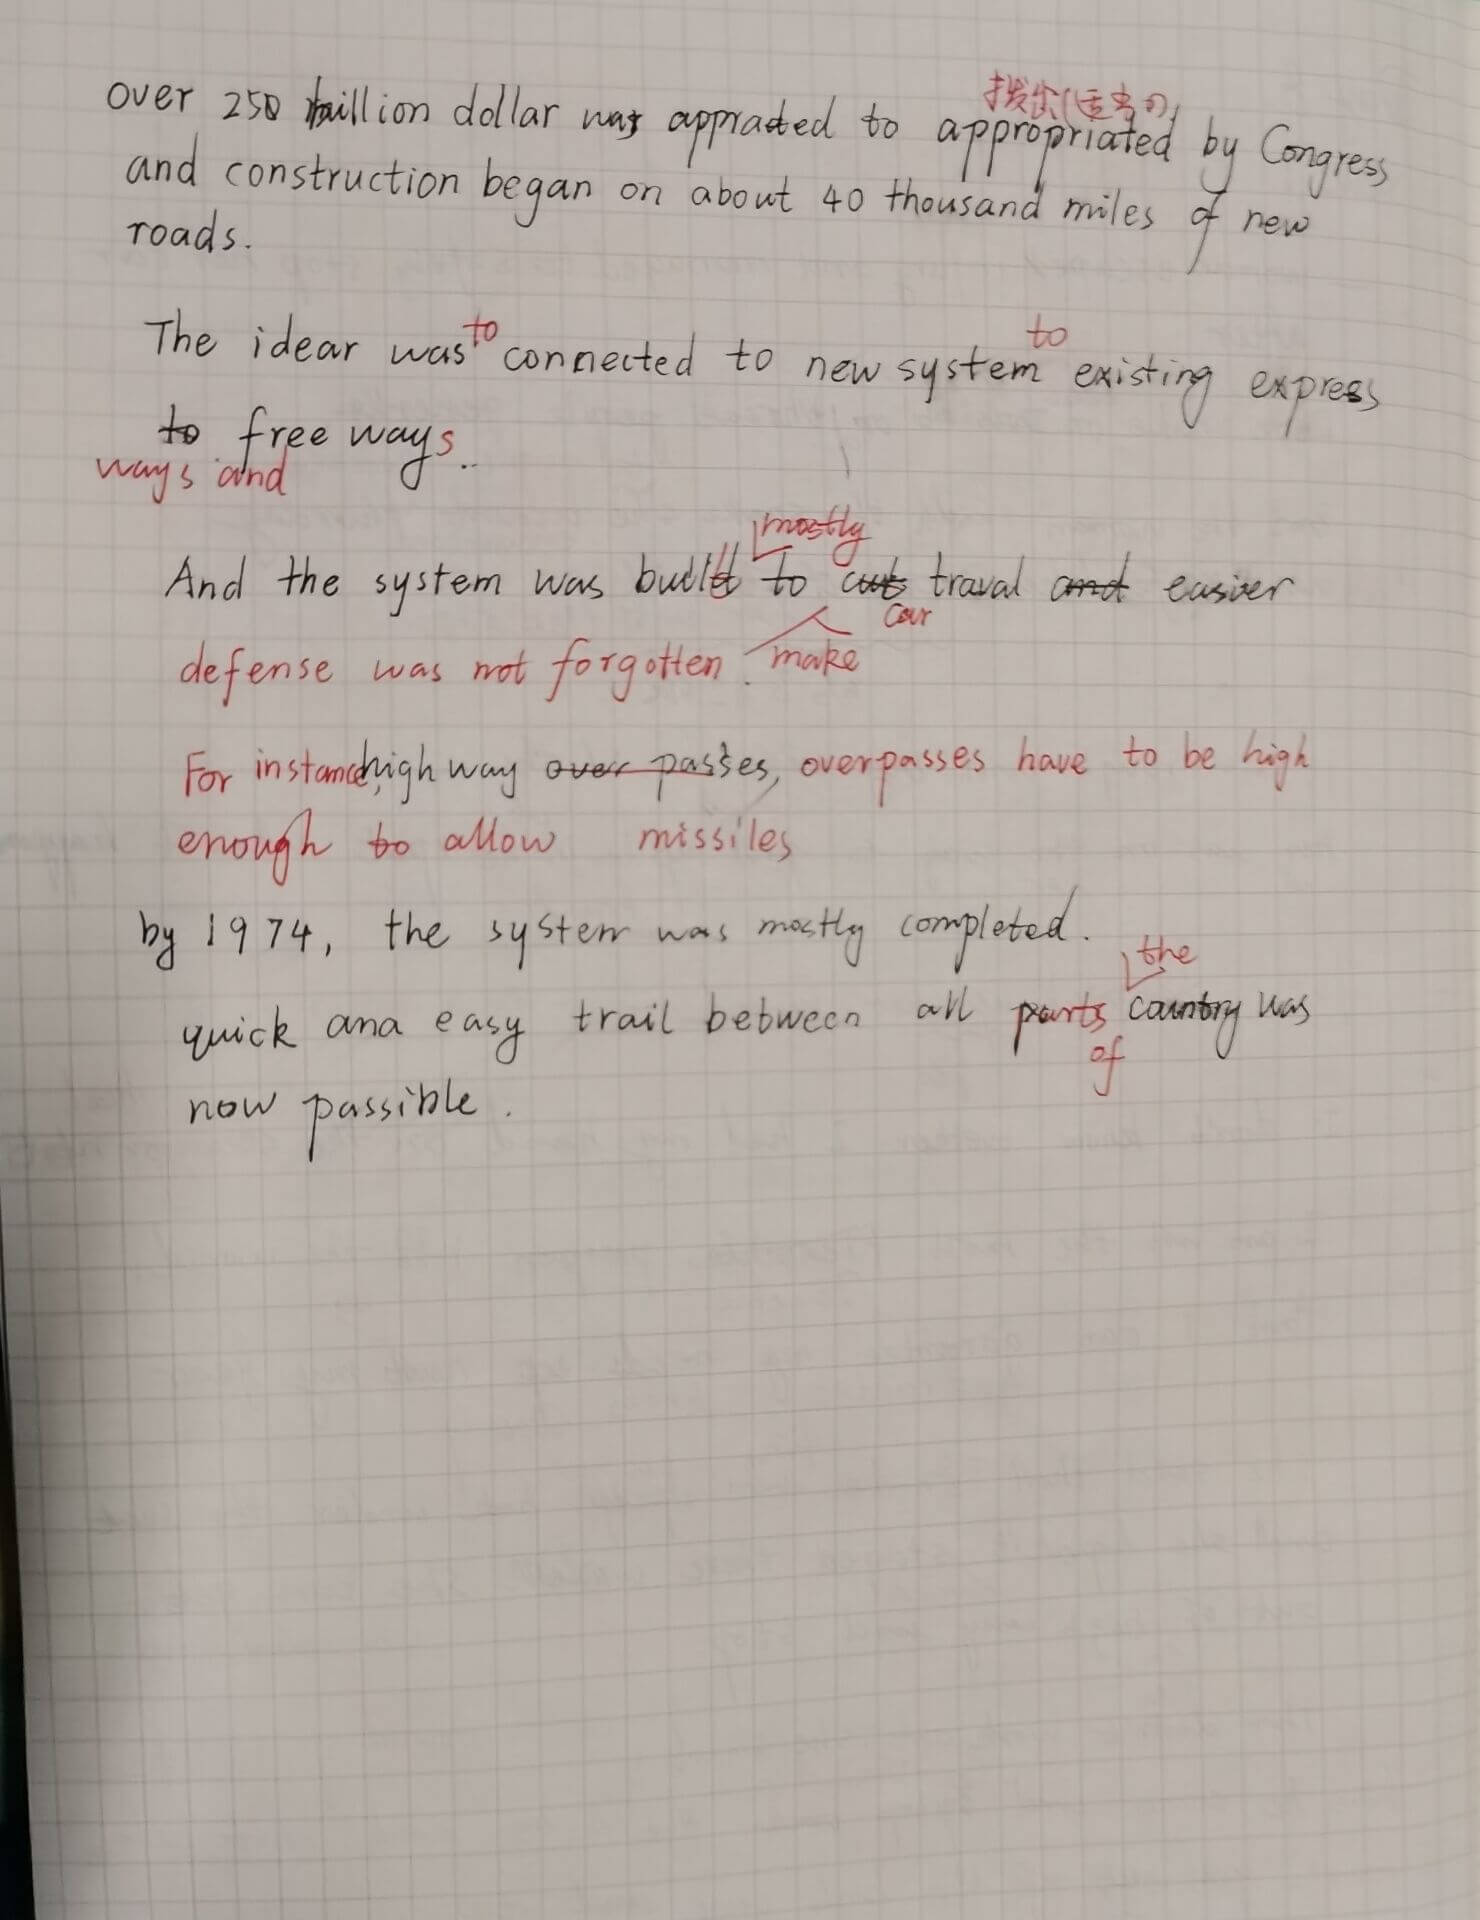 拨出(适当的)
over 250 billion dollar was appraated to appropriated by Congress
and construction began on about 40 thousand miles of new
roads.
to to
The idear was connected to new system existing express
to free ways..
ways and
mostly
And the system was build to cut traval and easiver
car
defense was not forgotten. make
For instance, high way over passes, overpasses have to be high
enough to allow missiles
by 1974, the system was mostly completed.
the
quick and easy trail between all parts country was
of
now passible.